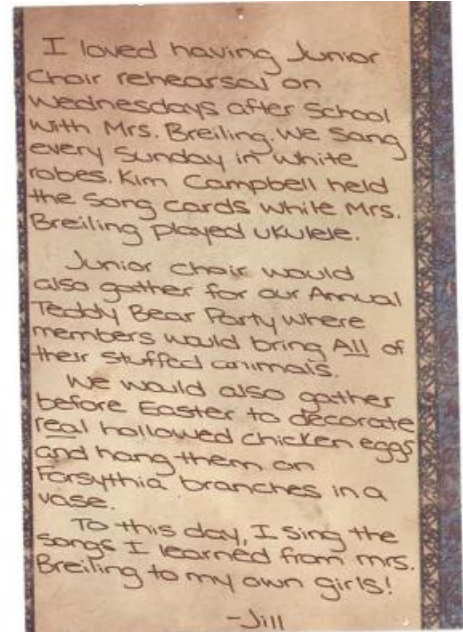 I loved having Junior
Choir rehearsal on
Wednesdays after School
with Mrs. Breiling. We Sang
every Sunday in white
robes. Kim Campbell held
the Song cards while Mrs.
Breiling played ukulele.
Junior choir would
also gather for our Annual
Teddy Bear Party where
members would bring All of
their Stuffed animals.
We would also gather
before Easter to decorate
real hollowed chicken eggs
and hang them on
Forsythia branches in a
vase.
To this day, I sing the
songs I learned from mrs.
Breiling to my own girls!
-Jill